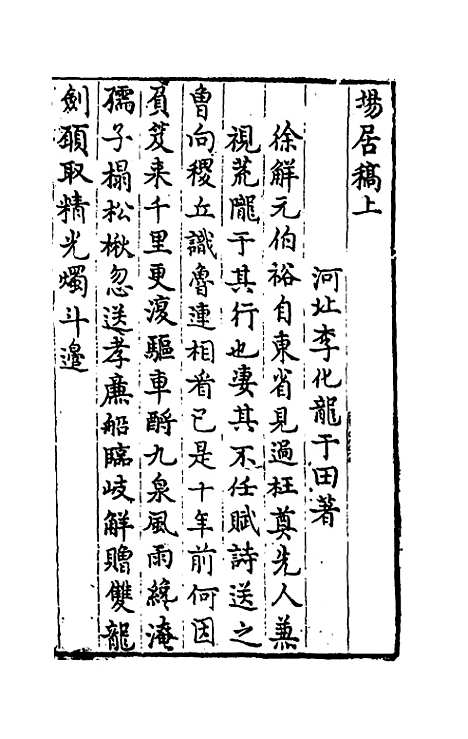 場居稿上
河北李化龍于田著
徐解元伯裕自東省見過枉奠先人兼
視荒隴于其行也妻其不任賦詩送之
曾向稷丘識魯連相看已是十年前何因
負笈來千里更漬驅車酹九泉風雨纔淹
孺子榻松楸忽送孝廉船臨岐解贈雙龍
劍頋取精光燭斗邉